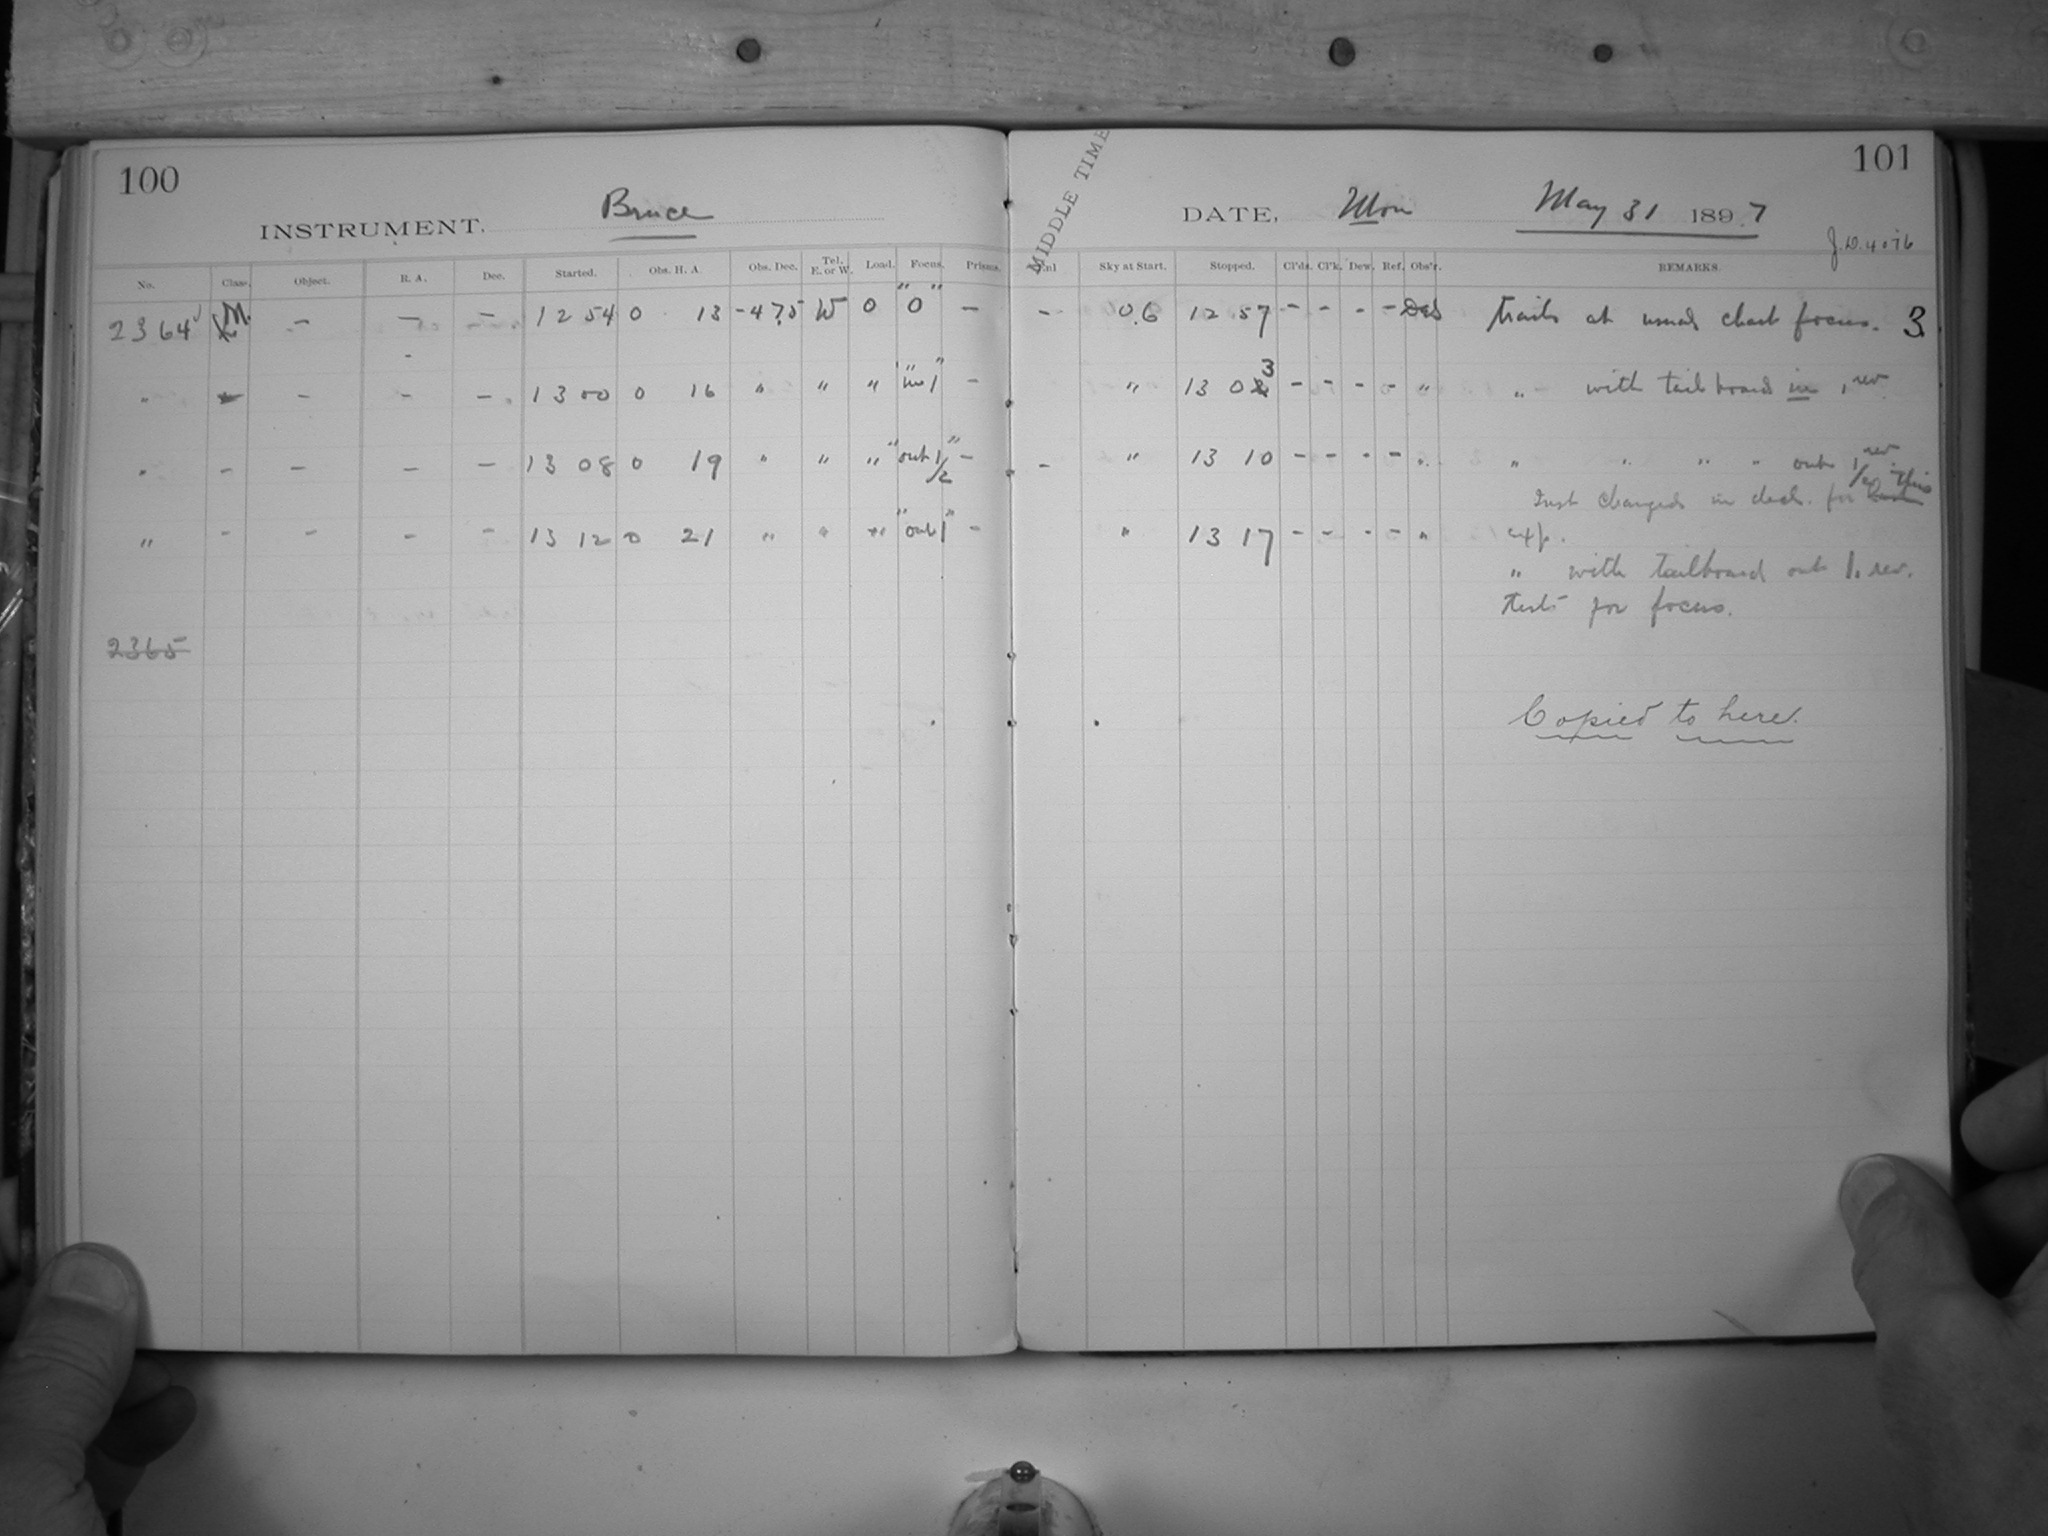 100
INSTRUMENT. Bruce
No. Class. Object. R. A. Dec. Started. Obs. H. A. Obs. Dec. Tel. E. or W. Load. Focus. Prisms.
2364 M — — — 12 54 0 13 -47.5 W 0 "0" —
" — — — 13 00 0 16 " " " "in 1" —
" - — — — 13 08 0 19 " " " "out 1/2" —
" - - - - 13 12 0 21 " " " "out 1" -
2365
101
MIDDLE TIME
DATE, Mon May 31 1897
J.D. 4076
Sky at Start. Stopped. Cl'ds. Cl'k. Dew. Ref. Obs'r. REMARKS.
- 0.6 12 57 - - - - trails at usual chart focus. 3
" 13 03 - - - - " " with tailboard in 1 rev
- " 13 10 - - - - " " " " " out 1/2 rev. This
Just changed in decl. for
" 13 17 - - - - " exp.
" with tailboard out 1. rev.
tests for focus.
Copied to here.